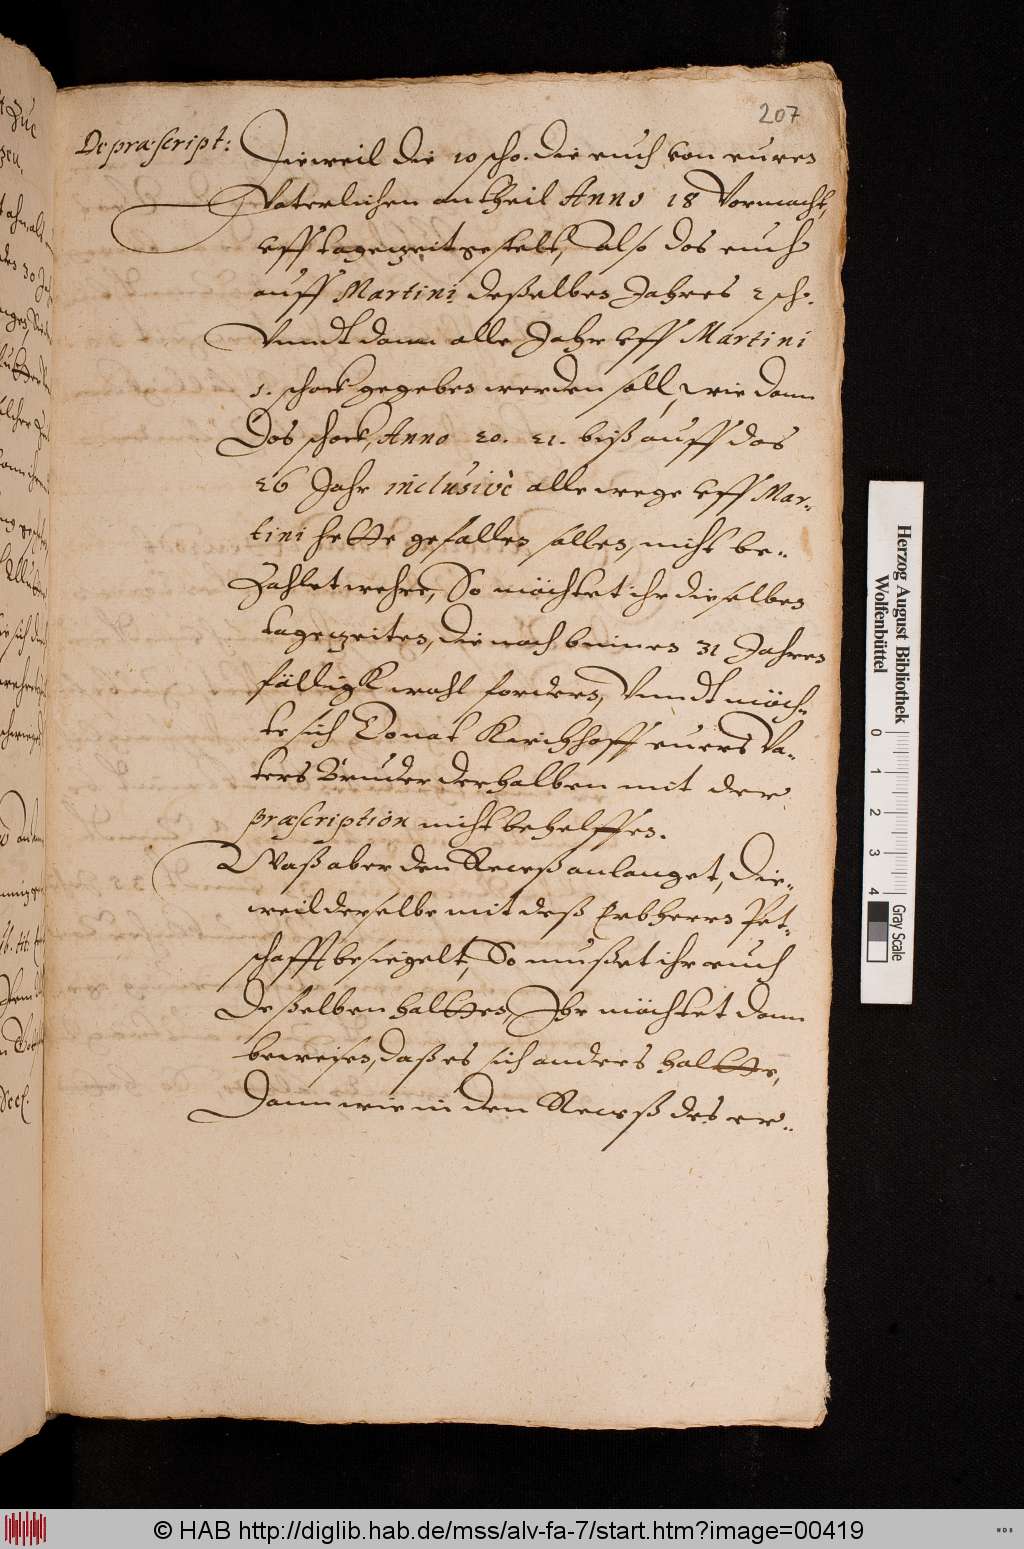 207
De præscript:
Dieweil die 10 scho. die euch von eures
Vaterlichen antheil Anno 18 Vormacht,
vff tagezeit gestelt, also das euch
auff Martini deßelben Jahres 2 scho.
Vnndt dann alle Jahr vff Martini
1. schock gegeben werden soll, wie dann
Das schock, Anno 20. 21. biß auff das
26 Jahr inclusivè allewege vff Mar-
tini hette gefallen sollen, nicht be-
Zahlet wehre, So möchtet ihr dieselben
tagezeiten, die noch binnen 31 Jahren
fälligk wohl fordern, Vnndt möch-
te sich Donat Kirchhoff euers Va-
ters Bruder derhalben mit der
præscription nicht behelffen.
Waß aber den Receß anlanget, die-
weil derselbe mit deß Erbherrn Pet-
schafft besiegelt, So mußet ihr euch
deßelben haltten, Ihr möchtet dann
beweisen, daß es sich anders haltte,
Dann wie in den Receß des er-
Herzog August Bibliothek
Wolfenbüttel
0 1 2 3 4
Gray Scale
© HAB http://diglib.hab.de/mss/alv-fa-7/start.htm?image=00419